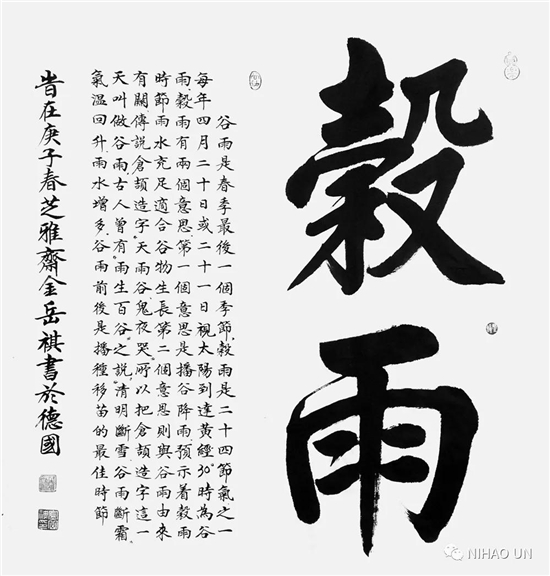 穀雨
谷雨是春季最後一個季節,穀雨是二十四節氣之一
每年四月二十日或二十一日視太陽到達黃經30°時為谷
雨,穀雨有兩個意思,第一個意思是播谷降雨,預示着穀雨
時節雨水充足適合谷物生長,第二個意思則與谷雨由來
有關,傳說倉頡造字"天雨谷鬼夜哭"所以把倉頡造字這一
天叫做谷雨,古人曾有"雨生百谷"之說,"清明斷雪谷雨斷霜"
氣溫回升雨水增多,谷雨前後是播種移苗的最佳時節
旹在庚子春芝雅齋金岳祺書於德國
NIHAO UN